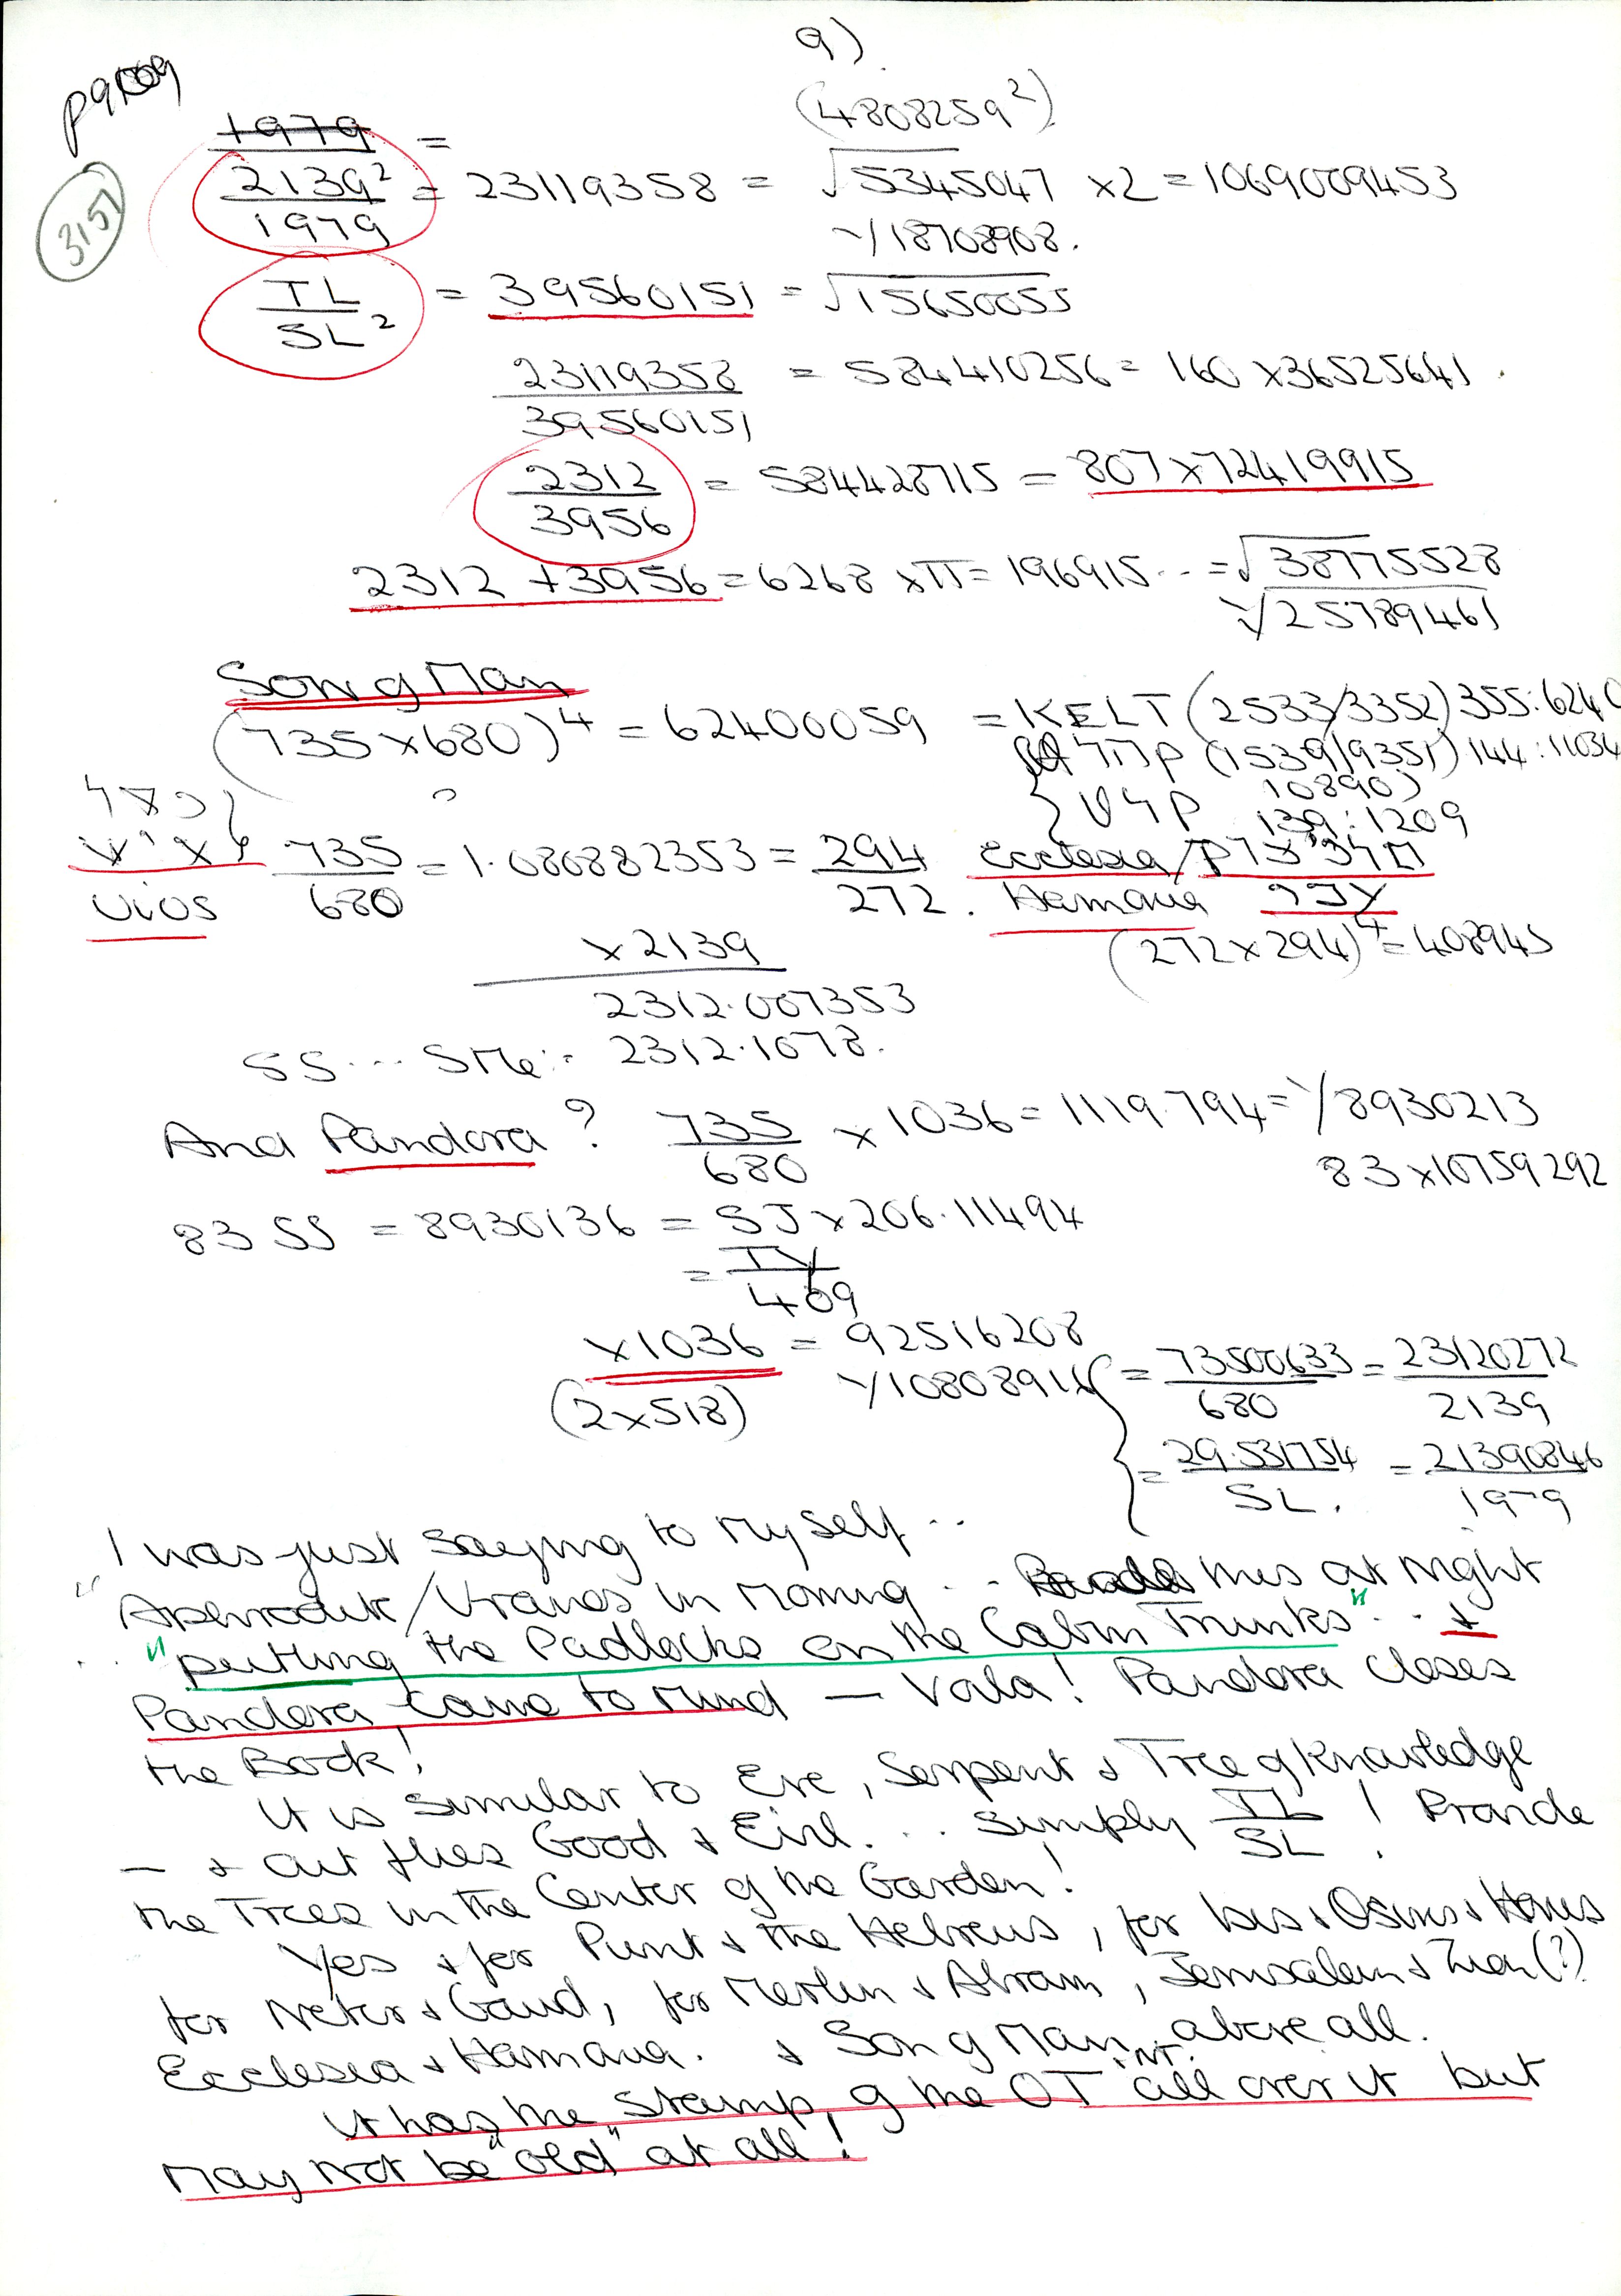 9)
(4808259²)
1979 =
3151
2139² / 1979 = 23119358 = √5345047 × 2 = 1069009453
\/18708908.
TL / SL² = 39560151 = √15650055
23119358 / 39560151 = 584410256 = 160 × 36525641
2312 / 3956 = 584428715 = 807 × 72419915
2312 + 3956 = 6268 × π = 196915... = √38775528
\/25789461
Son of Man
(735 × 680)⁴ = 62400059 = KELT (2533/3352) 355:6240
(1539/9351) 144:11034
10890)
139:1209
735 / 680 = 1.080882353 = 294 / 272. Ecclesia /
υιος
Hamona
× 2139
(272 × 294)⁴ = 408945
2312.007353
SS ... SMe:- 2312.1078.
And Pandora? 735 / 680 × 1036 = 1119.794 = \/8930213
83 × 10759292
83 SS = 8930136 = SJ × 206.11494
= TV / 409
× 1036 = 92516208
(2 × 518) \/10808914
= 73500633 / 680 = 23120272 / 2139
= 29.531754 / SL. = 21390846 / 1979
I was just saying to myself ..
"Aphrodite/Uranos in morning ... this at night
... "putting the Padlocks on the Cabin Trunks" ... +
Pandora came to mind — Voila! Pandora closes
the Book!
It is similar to Eve, Serpent + Tree of Knowledge
— + out flies Good + Evil... simply TL / SL! Provide
the Trees in the Center of the Garden!
Yes + for Punt + the Hebrews, for Isis + Osiris + Horus
for Neter + Gaud, for Merlin + Abram, Jerusalem + Zion(?)
Ecclesia + Hamona. + Son of Man above all.
It has the stamp of the OT "NT" all over it but
may not be "old" at all!